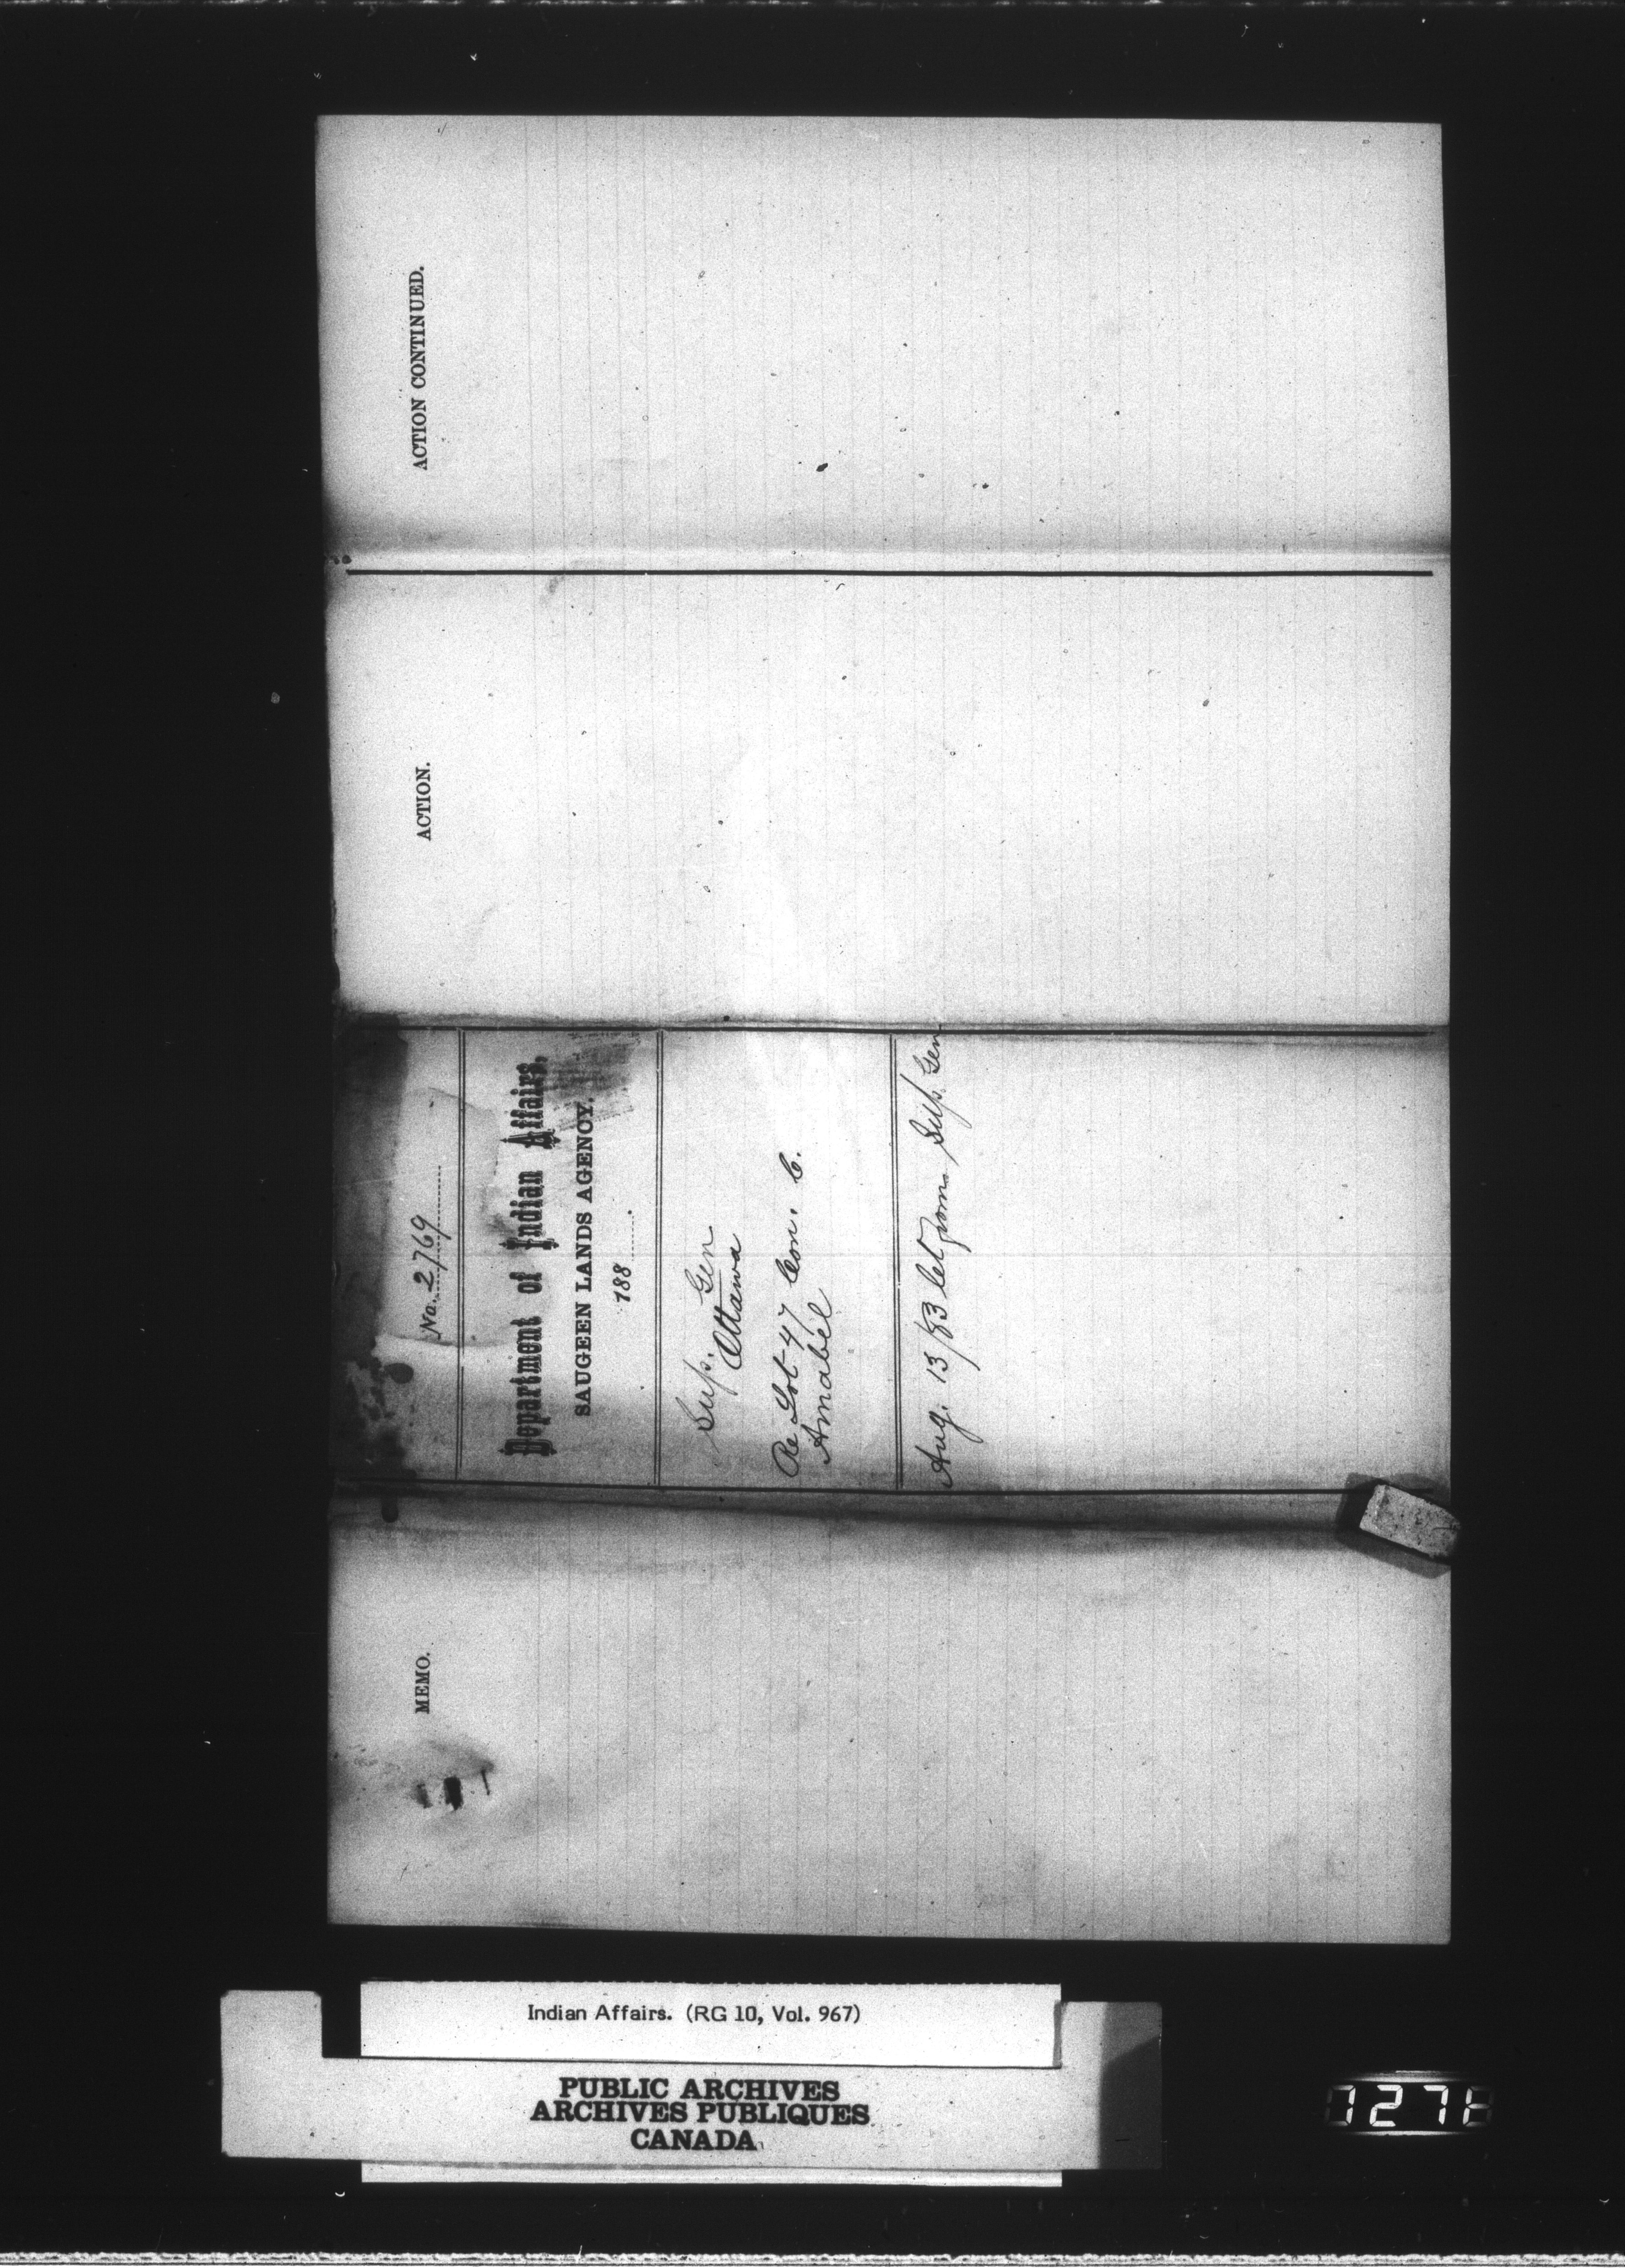 ACTION CONTINUED.
ACTION.
No. 2769
Department of Indian Affairs,
SAUGEEN LANDS AGENCY.
188
Sup. Gen
Ottawa
Re Lot 47 Con. C.
Amabel
Aug. 13/83 let from Sup. Gen
MEMO.
Indian Affairs. (RG 10, Vol. 967)
PUBLIC ARCHIVES
ARCHIVES PUBLIQUES
CANADA